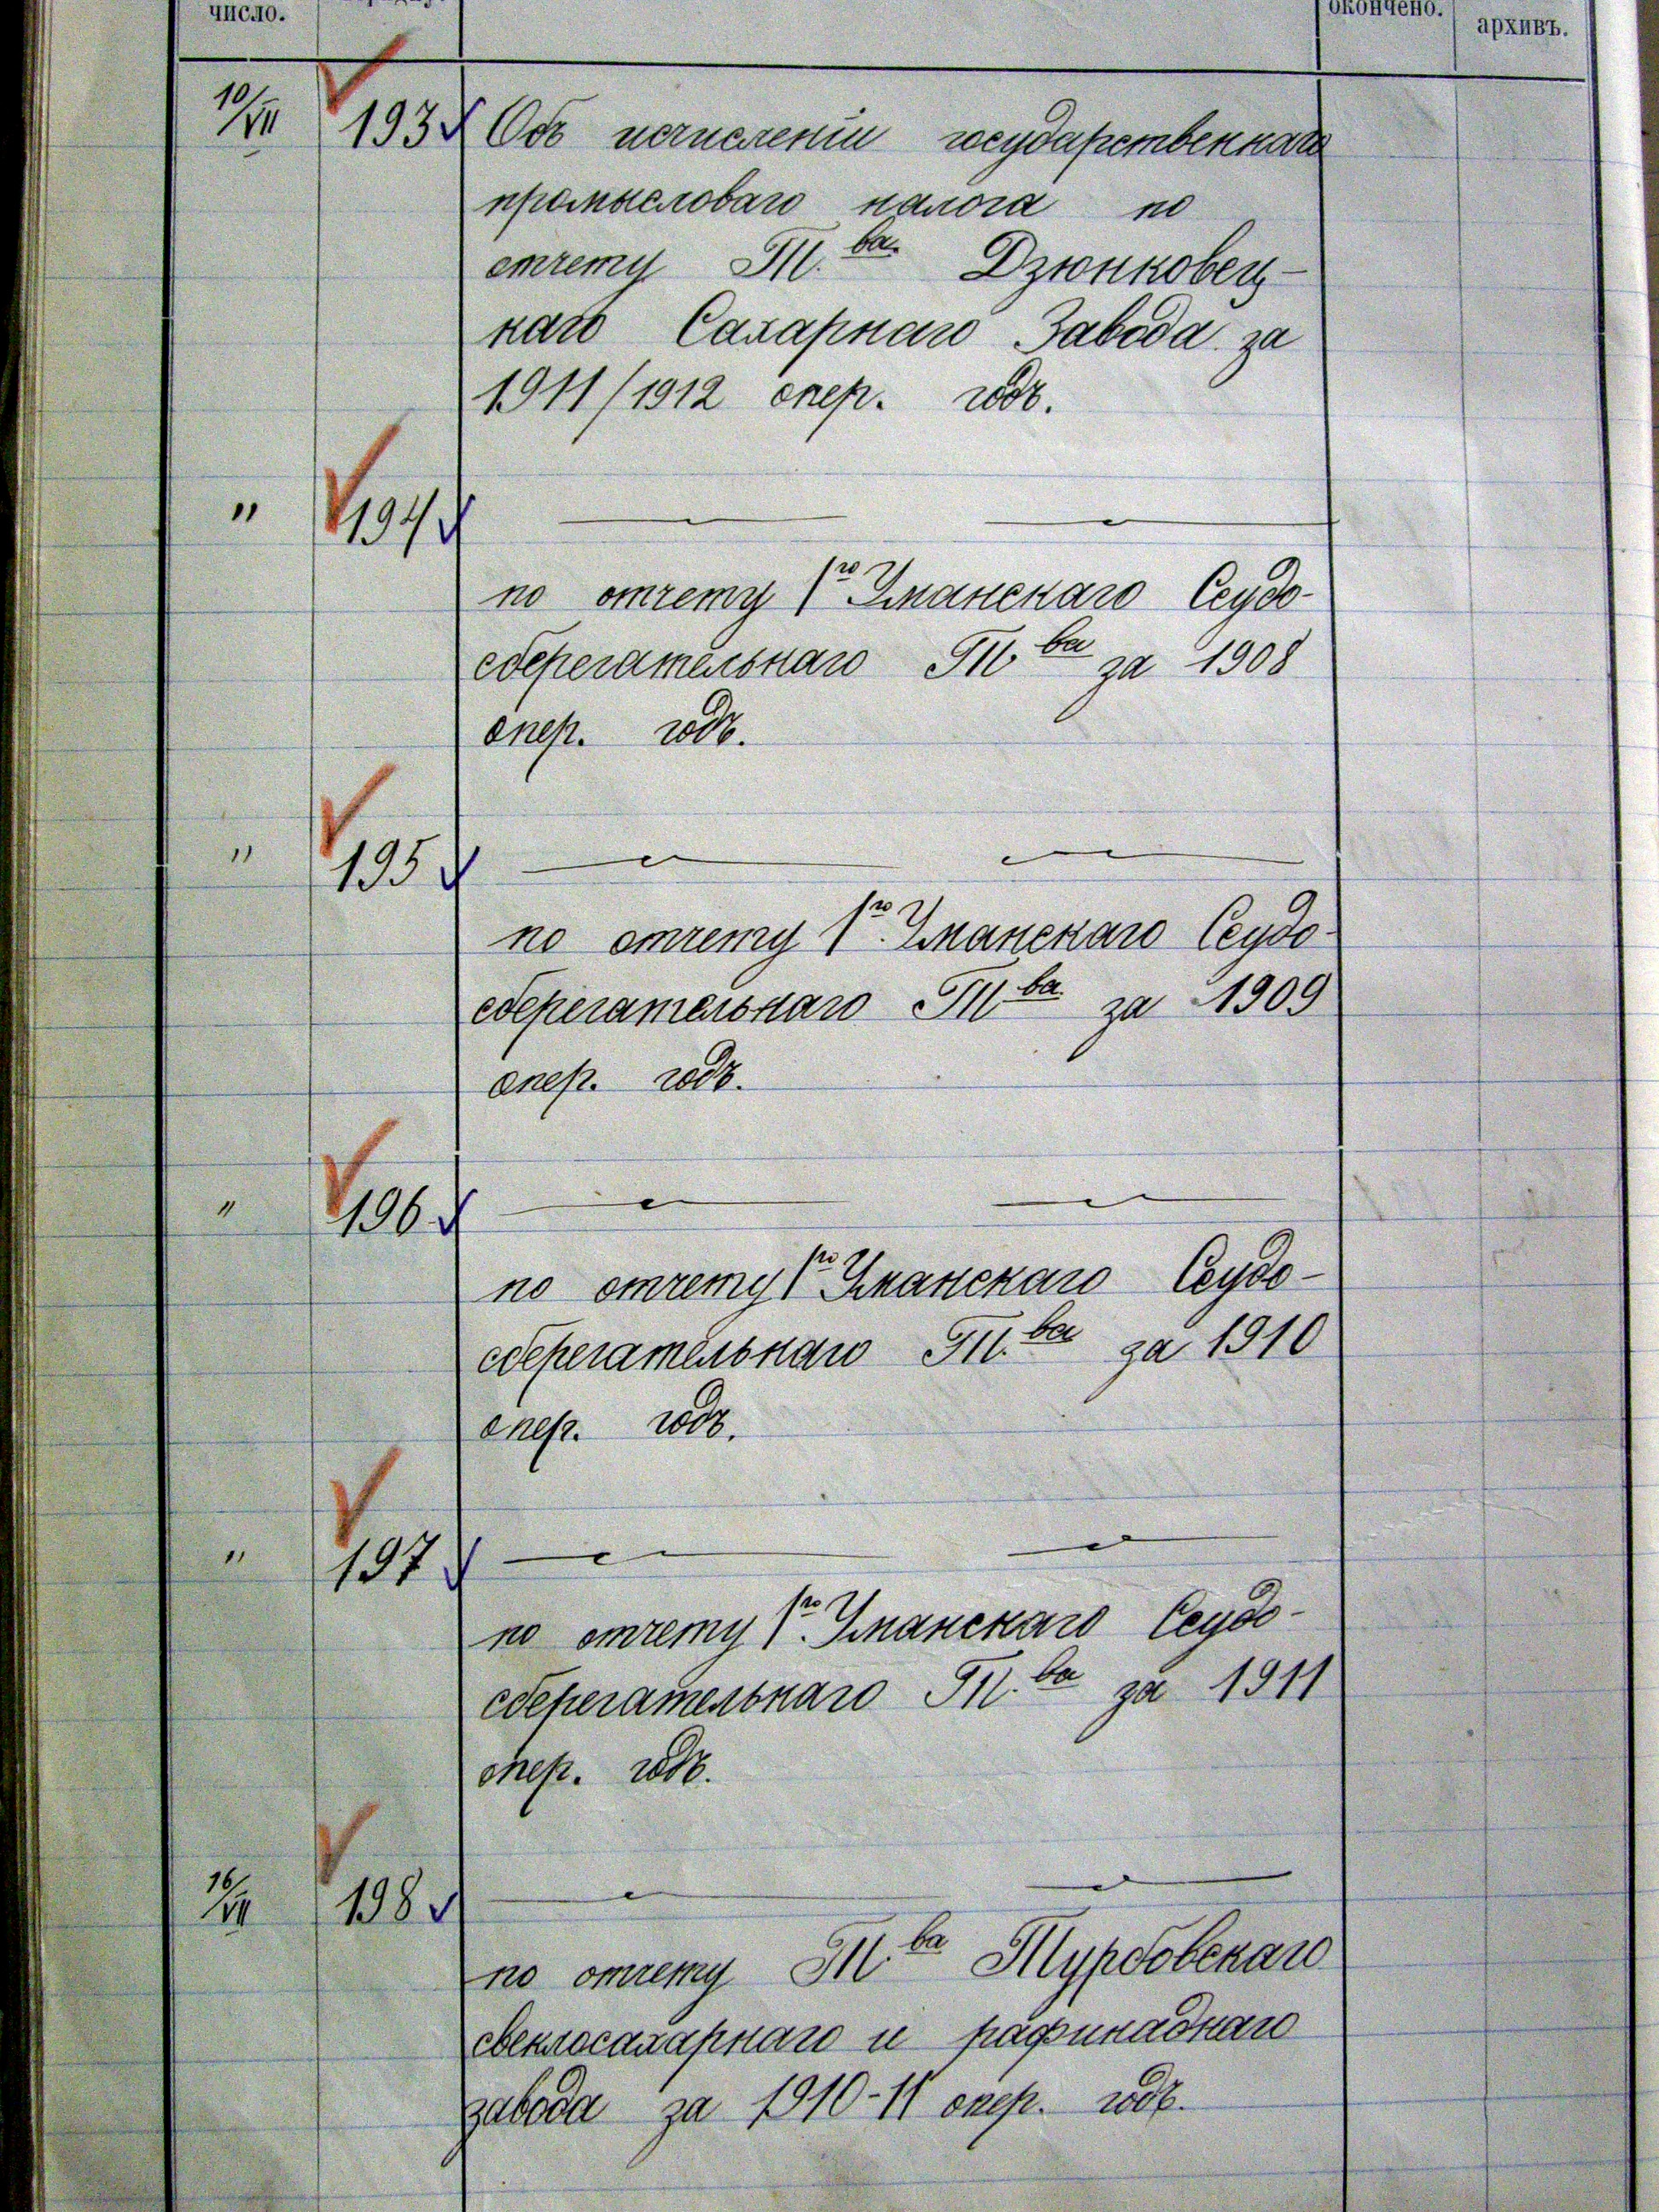 число.
окончено.
архивъ.
10/VII 193 Объ исчисленіи государственнаго
промысловаго налога по
отчету Т.ва Дзюнковец-
каго Сахарнаго Завода за
1911/1912 опер. годъ.
" 194 — —
по отчету 1го Уманскаго Ссудо-
сберегательнаго Т.ва за 1908
опер. годъ.
" 195 — —
по отчету 1го Уманскаго Ссудо-
сберегательнаго Т.ва за 1909
опер. годъ.
" 196 — —
по отчету 1го Уманскаго Ссудо-
сберегательнаго Т.ва за 1910
опер. годъ.
" 197 — —
по отчету 1го Уманскаго Ссудо-
сберегательнаго Т.ва за 1911
опер. годъ.
16/VII 198 — —
по отчету Т.ва Турбовскаго
свеклосахарнаго и рафинаднаго
завода за 1910-11 опер. годъ.